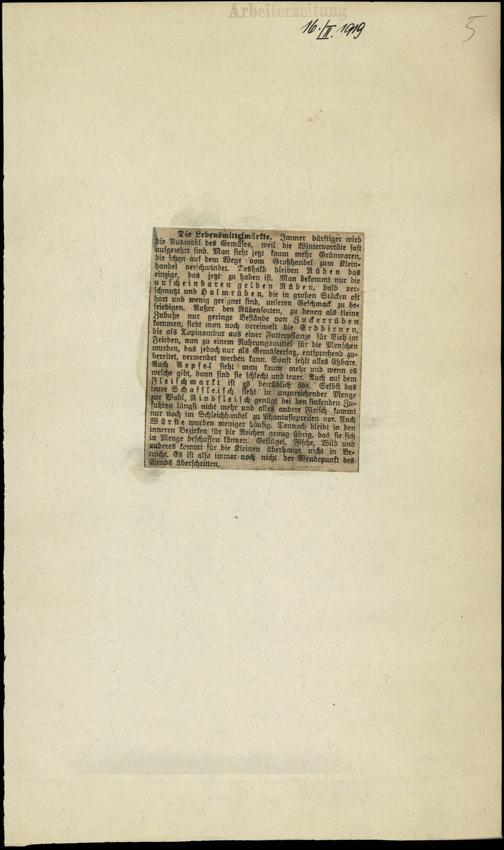 Arbeiterzeitung
16./II. 1919
5
Die Lebensmittelmärkte. Immer dürftiger wird
die Auswahl des Gemüses, weil die Wintervorräte fast
aufgezehrt sind. Man sieht jetzt kaum mehr Grünwaren,
die schon auf dem Wege vom Großhandel zum Klein-
handel verschwindet. Deshalb bleiben Rüben das
einzige, das jetzt zu haben ist. Man bekommt nur die
unscheinbaren gelben Rüben, bald ver-
schmutzt und Halmrüben, die in großen Stücken oft
hart und wenig geeignet sind, unseren Geschmack zu be-
friedigen. Außer den Rübensorten, zu denen als kleine
Zubuße nur geringe Bestände von Zuckerrüben
kommen, sieht man noch vereinzelt die Erdbirnen,
die als Topinambur aus einer Futterpflanze für Vieh im
Frieden, nun zu einem Nahrungsmittel für die Menschen
wurden, das jedoch nur als Gemüseersatz, entsprechend zu-
bereitet, verwendet werden kann. Sonst fehlt alles Eßbare.
Auch Aepfel sieht man kaum mehr und wenn es
welche gibt, dann sind sie schlecht und teuer. Auch auf dem
Fleischmarkt ist es betrüblich öde. Selbst das
teure Schaffleisch steht in unzureichender Menge
zur Wahl, Rindfleisch genügt bei den sinkenden Zu-
fuhren längst nicht mehr und alles andere Fleisch kommt
nur noch im Schleichhandel zu Phantasiepreisen vor. Auch
Würste wurden weniger häufig. Dennoch bleibt in den
inneren Bezirken für die Reichen genug übrig, das sie sich
in Menge beschaffen können. Geflügel, Fische, Wild und
anderes kommt für die Kleinen überhaupt nicht in Be-
tracht. Es ist also immer noch nicht der Wendepunkt des
Elends überschritten.